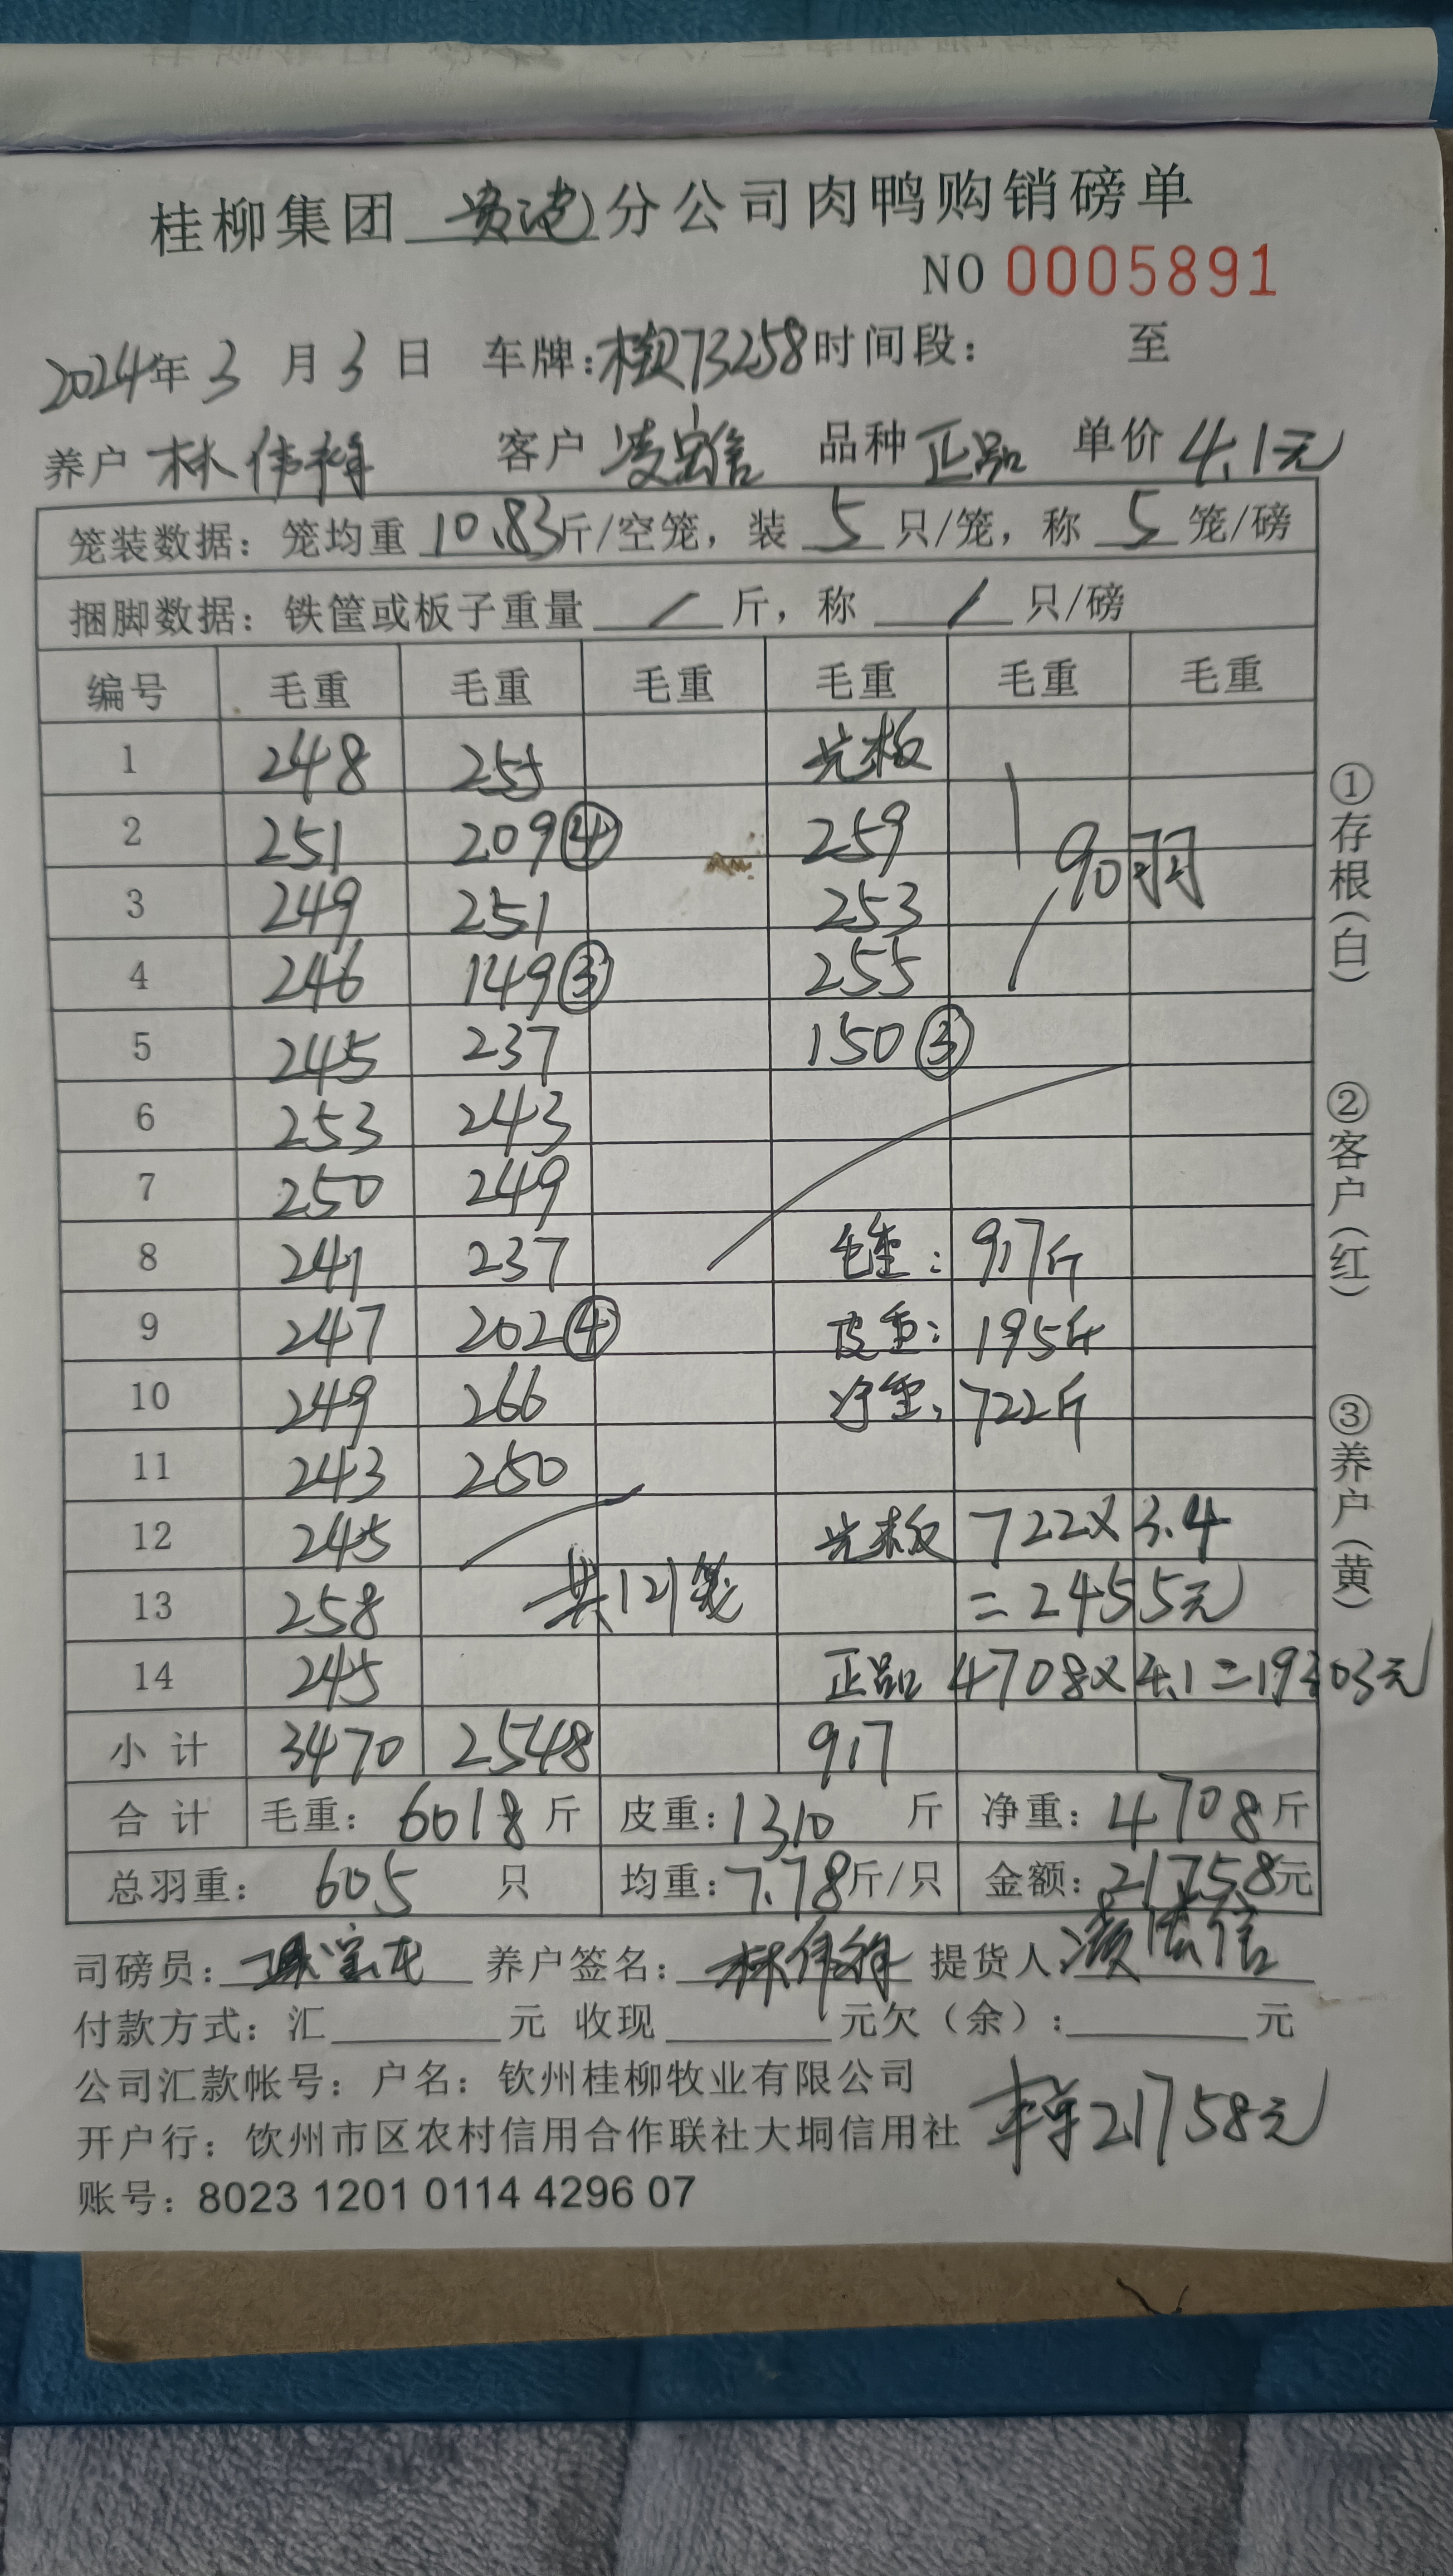 桂柳集团 贵港 分公司肉鸭购销磅单
NO 0005891
2024年 3 月 3 日 车牌:桂R73258 时间段: 至
养户 林伟祥 客户 凌宏信 品种 正品 单价 4.1元
笼装数据: 笼均重 10.83 斤/空笼, 装 5 只/笼, 称 5 笼/磅
捆脚数据: 铁筐或板子重量 / 斤, 称 / 只/磅
编号 毛重 毛重 毛重 毛重 毛重 毛重
1 248 255 光板
2 251 209④ 259
90羽
3 249 251 253
4 246 149③ 255
5 245 237 150③
6 253 243
7 250 249
8 241 237 毛重: 917斤
9 247 202④ 皮重: 195斤
10 249 266 净重: 722斤
11 243 250
12 245 光板 722×3.4
13 258 共121笼 =2455元
14 245 正品 4708×4.1=19303元
小计 3470 2548 917
合计 毛重: 6018 斤 皮重: 1310 斤 净重: 4708 斤
总羽重: 605 只 均重: 7.78 斤/只 金额: 21758元
司磅员: 养户签名: 林伟祥 提货人: 凌宏信
付款方式: 汇 元 收现 元欠(余): 元
公司汇款帐号: 户名: 钦州桂柳牧业有限公司
开户行: 饮州市区农村信用合作联社大垌信用社
21758元
账号: 8023 1201 0114 4296 07
①存根(白)
②客户(红)
③养户(黄)